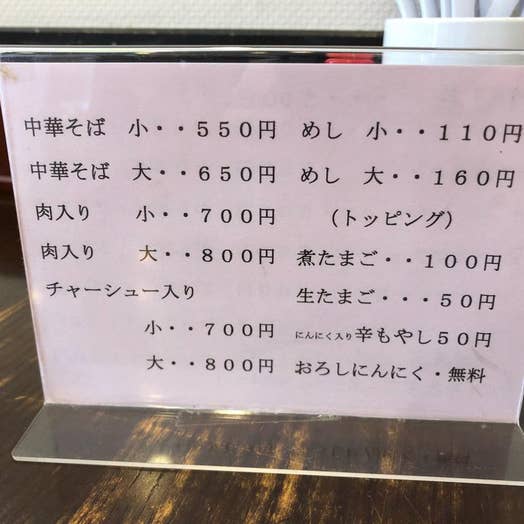 中華そば 小・・５５０円
中華そば 大・・６５０円
肉入り 小・・７００円
肉入り 大・・８００円
チャーシュー入り
小・・７００円
大・・８００円
めし 小・・１１０円
めし 大・・１６０円
（トッピング）
煮たまご・・１００円
生たまご・・・５０円
にんにく入り辛もやし５０円
おろしにんにく・無料